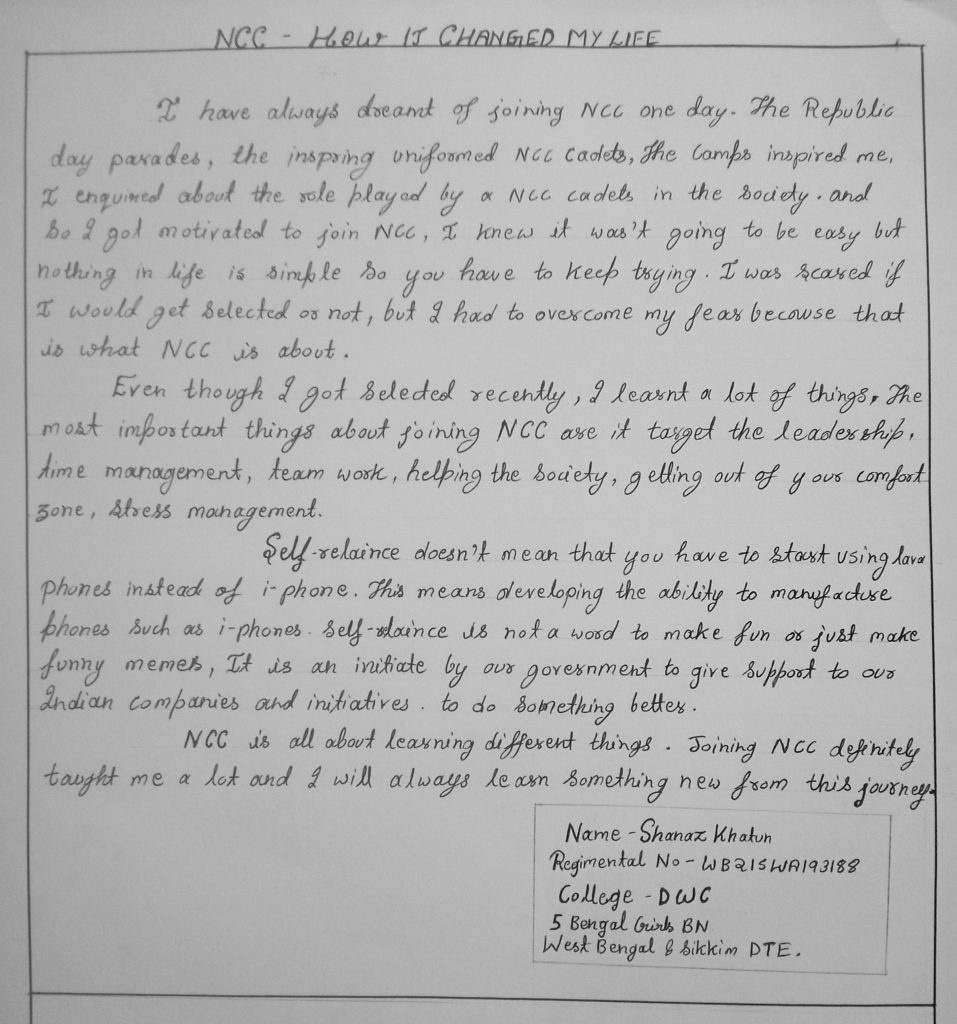 NCC - How IT CHANGED MY LIFE
I have always dreamt of joining NCC one day. The Republic
day parades, the inspring uniformed NCC Cadets, The Camps inspired me,
I enquired about the role played by a NCC cadets in the society. and
So I got motivated to join NCC, I knew it was't going to be easy but
nothing in life is simple So you have to keep trying. I was scared if
I would get Selected or not, but I had to overcome my fear becouse that
is what NCC is about.
Even though I got Seleted recently, I learnt a lot of things, The
most important things about joining NCC are it target the leadership,
time management, team work, helping the Society, getting out of your comfort
zone, stress management.
Self-relaince doesn't mean that you have to start using lava
phones instead of i-phone. This means developing the ability to manufacture
phones Such as i-phones. Self-relaince is not a word to make fun or just make
funny memes, It is an initiate by our government to give Support to our
Indian companies and initiatives. to do Something better.
NCC is all about learning different things. Joining NCC definitely
taught me a lot and I will always learn Something new from this journey.
Name - Shanaz Khatun
Regimental No - WB21SWA193188
College - DWC
5 Bengal Girls BN
West Bengal & Sikkim DTE.